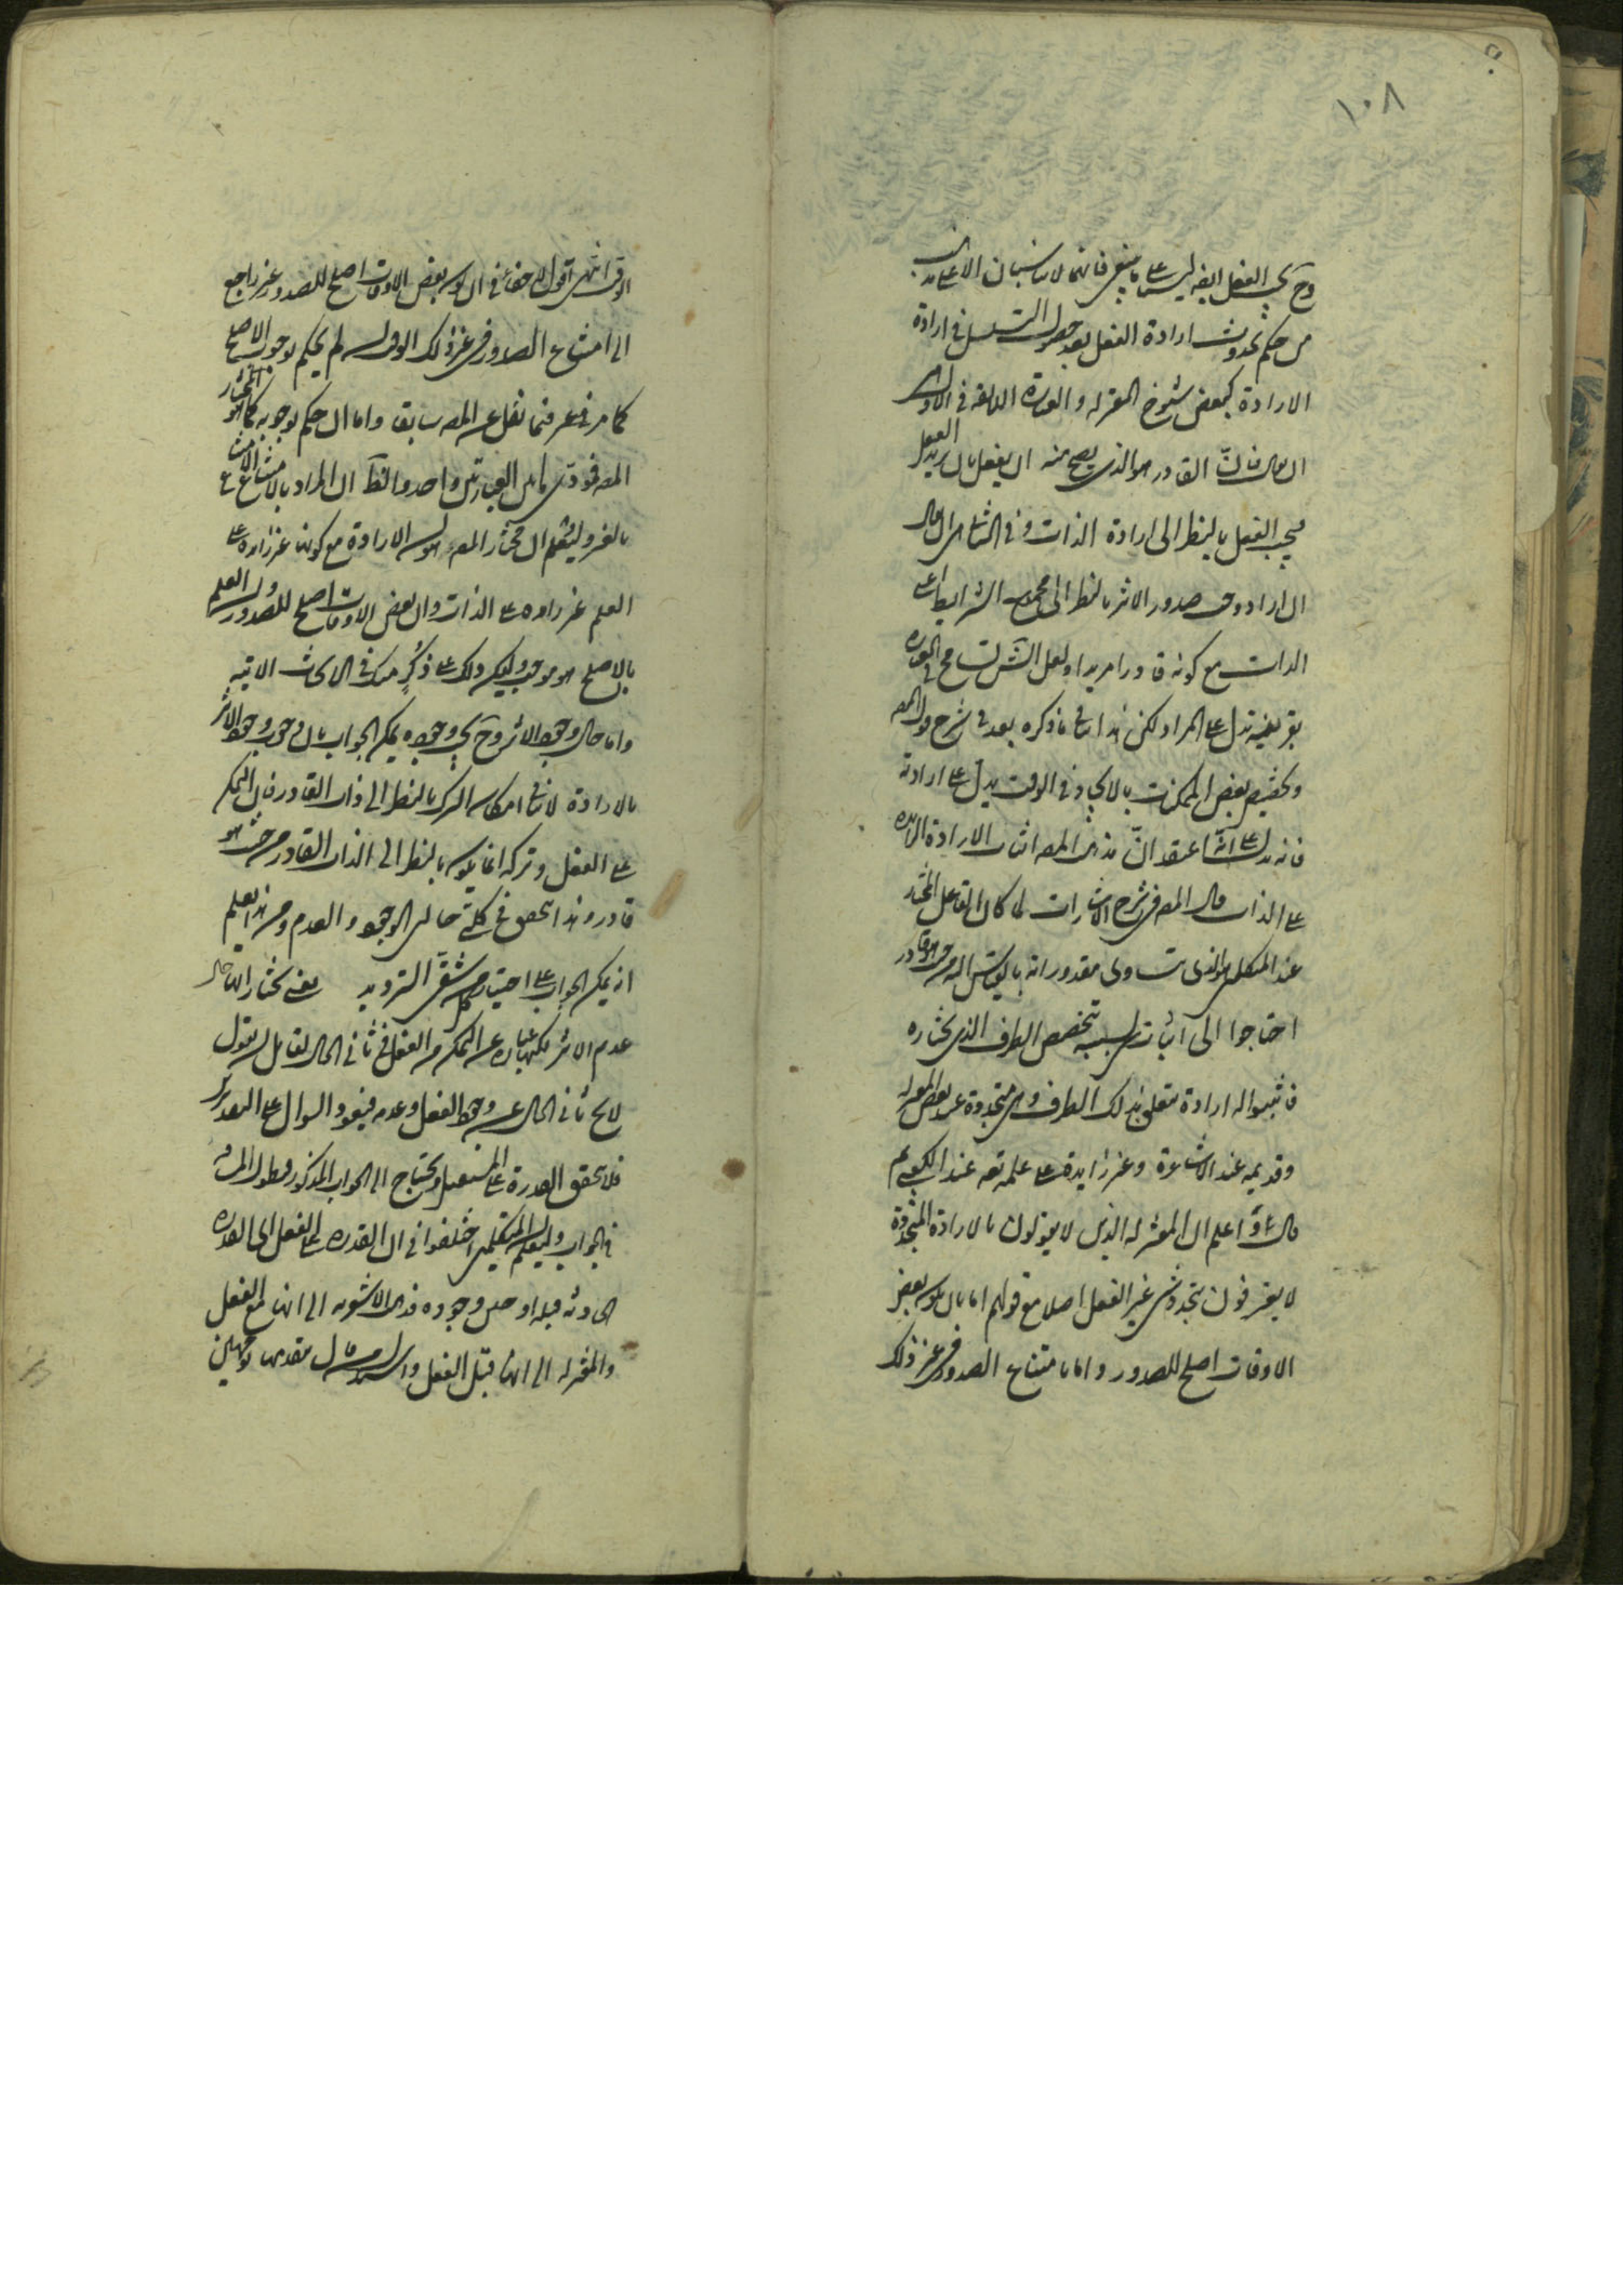 ١٠٨
وح يجب الفعل ايضا ليس على ما ينبغي فانهما لا يناسبان الا على مذهب
من حكم بحدوث ارادة الفعل بعد حصول التسلسل في ارادة
الارادة كبعض شيوخ المعتزلة والعبارة اللايقة في الاول
ان يقال فان القادر هو الذي يصح منه ان يفعل بان يريد الفعل
فيجب الفعل بالنظر الى ارادة الذات وفي الثاني ان يقال
ان اراد وجب صدور الاثر بالنظر الى مجموع الشرايط
الذات مع كونه قادرا مريدا ولعل الش تسامح في العبارة
بقرينة تدل على المراد لكن هذا ينافي ما ذكره بعد في شرح قول المص
وتخصيص بعض الممكنات بالايجاد في الوقت يدل على ارادته
فانه يدل على انه اعتقد ان مذهب المص اثبات الارادة الزايدة
على الذات قال المص في شرح الاشارات لما كان الفاعل المختار
عند المتكلمين هو الذي تساوى مقدوراته بالقياس اليه من حيث هو قادر
احتاجوا الى اثبات شيء بسببه يتخصص الطرف الذي يختاره
فاثبتوا له ارادة متعلق بذلك الطرف وهي متجددة عند بعض المعتزلة
وقديمة عند الاشاعرة وغير زايدة على علمه تعه عند الكعبي ثم
قال اعلم ان المعتزلة الذين لا يقولون بالارادة المتجددة
لا يعترفون بتجدد شيء غير الفعل اصلا مع قولهم اما بان يكون بعض
الاوقات اصلح للصدور واما بامتناع الصدور في غير ذلك
الوقت انتهى اقول لا خفاء في ان كون بعض الاوقات اصلح للصدور غير راجع
الى امتناع الصدور في غير ذلك الوقت لم يحكم بوجوب الاصلح
كما مر في عرفنا نقل عن المص سابقا واما ان حكم بوجوبه كما هو المختار
المص فمودى العبارتين واحد والظ ان المراد بالامتناع الامتناع
بالغير وليعلم ان مختار المص هو الارادة مع كونه غير زايدة على
العلم غير زايدة على الذات وان بعض الاوقات اصلح للصدور والعلم
بالاصلح هو موجب وليكن ذلك على ذكر منك في الابحاث الاتية
واما حال وجود الاثر وح يجب وجوده يمكن الجواب بان وجوب وجود الاثر
بالارادة لا ينافي امكان الترك بالنظر الى ذات القادر فان التمكن
على الفعل وتركه انما يكون بالنظر الى الذات القادر من حيث هو
قادر وهذا يتحقق في كلتي حالتي الوجود والعدم ومن هذا يعلم
انه يمكن الجواب على اختيار كل من شقي الترديد يعني نختار انه حال
عدم الاثر لكنها عبارة عن التمكن من الفعل في ثاني الحال لقايل ان يقول
لا يخ ثاني الحال عن وجود الفعل وعدمه فيعود السوال على التقدير
فلا يتحقق القدرة على المستقبل ويحتاج الى الجواب المذكور
في الجواب وليعلم ان المتكلمين اختلفوا في ان القدرة على الفعل اي القدرة
الحادثة قبله او حين وجوده فذهب الاشعرية الى انها مع الفعل
والمعتزلة الى انها قبل الفعل